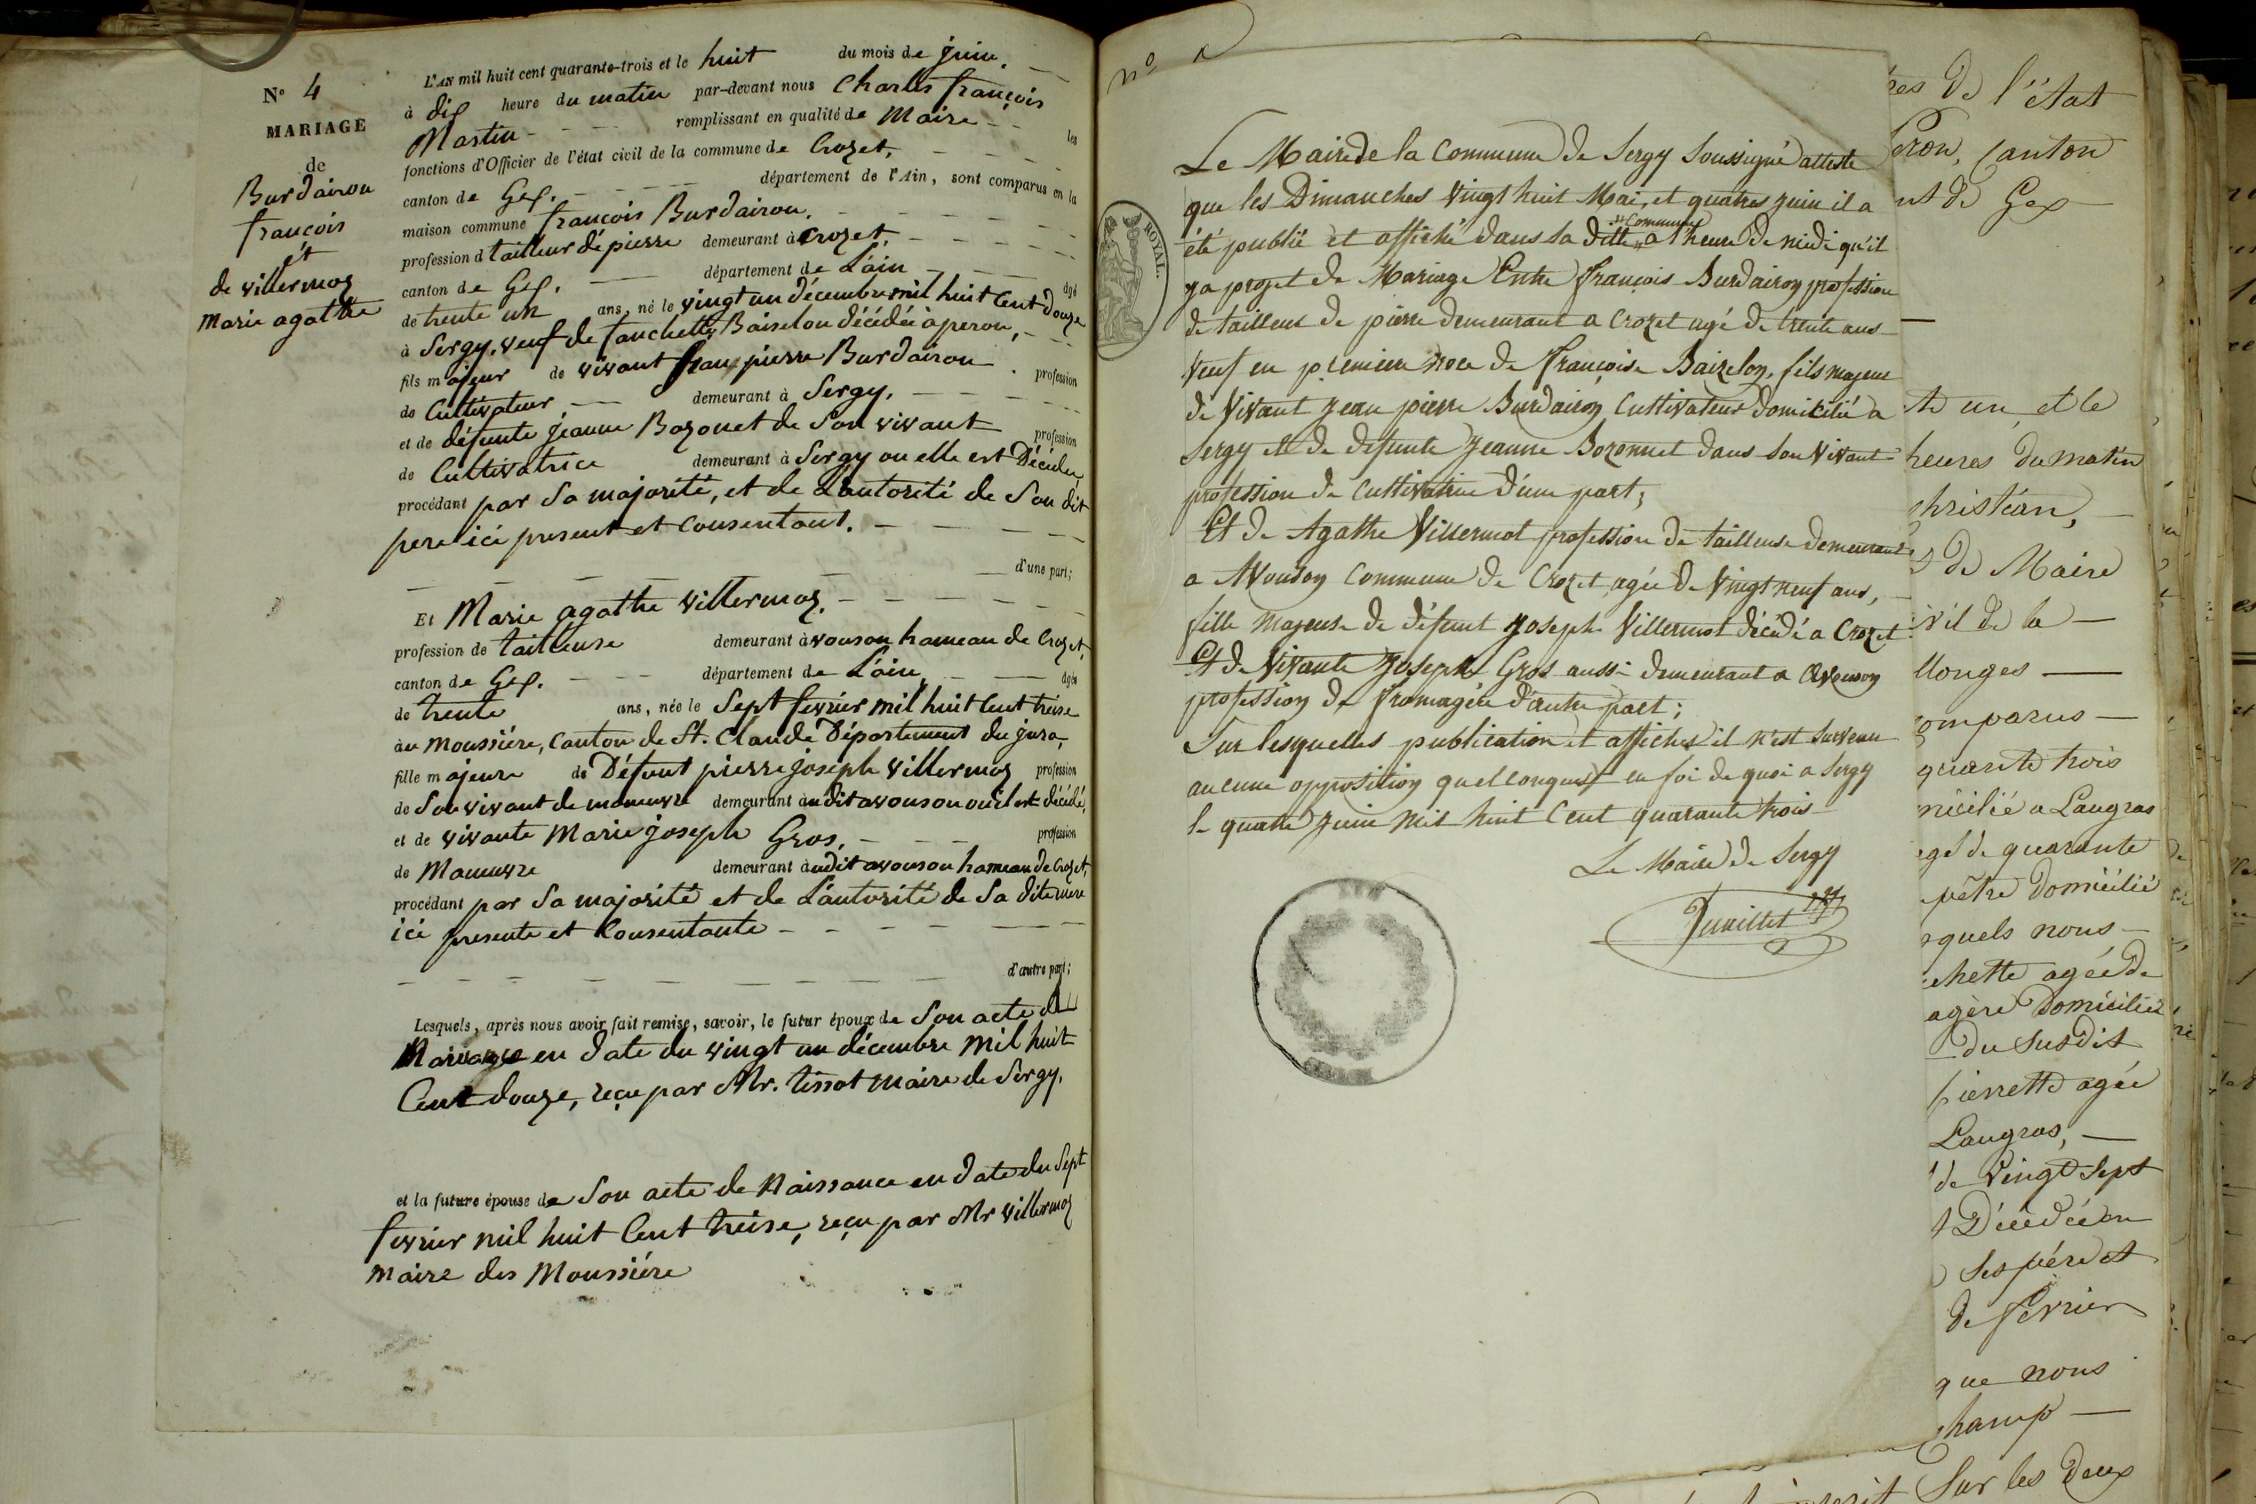 N° 4
MARIAGE
de
Burdairon
françois
et
de villermoz
Marie agathe
L'AN mil huit cent quarante-trois et le huit du mois de juin.
à dix heure du matin par-devant nous Charles françois
Martin remplissant en qualité de Maire les
fonctions d'Officier de l'état civil de la commune de Crozet,
canton de Gex. département de l'Ain, sont comparus en la
maison commune françois Burdairon.
profession d tailleur de pierre demeurant à Crozet,
canton de Gex. département de L'ain âgé
de trente un ans, né le vingt un décembre mil huit Cent douze
à Sergy, veuf de fanchette Baiselon décédée à peron,
fils majeur de vivant Jean pierre Burdairon profession
de Cultivateur demeurant à Sergy,
et de défunte jeanne Bozonet de Son vivant profession
de Cultivatrice demeurant à Sergy ou elle est Décédée
procédant par Sa majorité, et de L'autorité de Son dit
pere ici present et Consentant.
d'une part;
Et Marie agathe villermoz.
profession de tailleuse demeurant à vouson hameau de Crozet,
canton de Gex. département de L'ain, âgée
de trente ans, née le Sept fevrier mil huit Cent treise
au moussiére, Canton de St. Claude Département du jura,
fille majeure de Défunt pierre joseph villermoz profession
de Son vivant de maneuvre demeurant au dit avouson ou il est décédé,
et de vivante Marie joseph Gros, profession
de Maneuvre demeurant au dit avouson hameau de Crozet,
procédant par Sa majorité et de L'autorité de Sa dite mere
ici presente et Consentante
d'autre part;
Lesquels, après nous avoir fait remise, savoir, le futur époux de Son acte de
Naissance en date du vingt un décembre mil huit
Cent douze, reçu par Mr. tissot maire de Sergy.
et la future épouse de Son acte de Naissance en date du Sept
fevrier mil huit Cent treise, reçu par Mr villermoz
maire des Moussiére
n°
ROYAL.
Le Maire de la Commune de Sergy Soussigné atteste
que les Dimanches Vingt huit Mai, et quatres juin il a
été publié et affiché dans la ditte Commune a l'heure de midi qu'il
y a projet de Mariage Entre François Burdairon profession
de tailleur de pierre demeurant a Crozet agé de trente ans
Veuf en premiere noce de Françoise Baizelon, fils majeur
de Vivant Jean pierre Burdairon Cultivateur domicilié a
Sergy et de defunte Jeanne Bozonnet dans son Vivant
profession de Cultivatrice d'une part;
Et de Agathe Villermot profession de tailleuse demeurant
a Avouson Commune de Crozet, agée de Vingt neuf ans,
fille majeure de défunt Joseph Villermot décédé a Crozet
Et de Vivante Joseph Gros aussi demeurant a Avouson
profession de Fromagère d'autre part;
Sur lesquelles publication et affiches il n'est survenu
aucune opposition quelconques en foi de quoi a Sergy
le quatre juin mil huit Cent quarante trois
Le Maire de Sergy
de l'état
Péron, Canton
de Gex
un et le
heures du matin
christian,
de Maire
civil de la
llonges
comparus
quarante trois
domicilié a Laugras
agé de quarante
pêtre domicilié
nous
chette agée de
agère domiciliée
du susdit
pierrette agée
Laugras,
de Vingt Sept
Décédée en
Ses père et
de fevrier
que nous
champ
Sur les deux